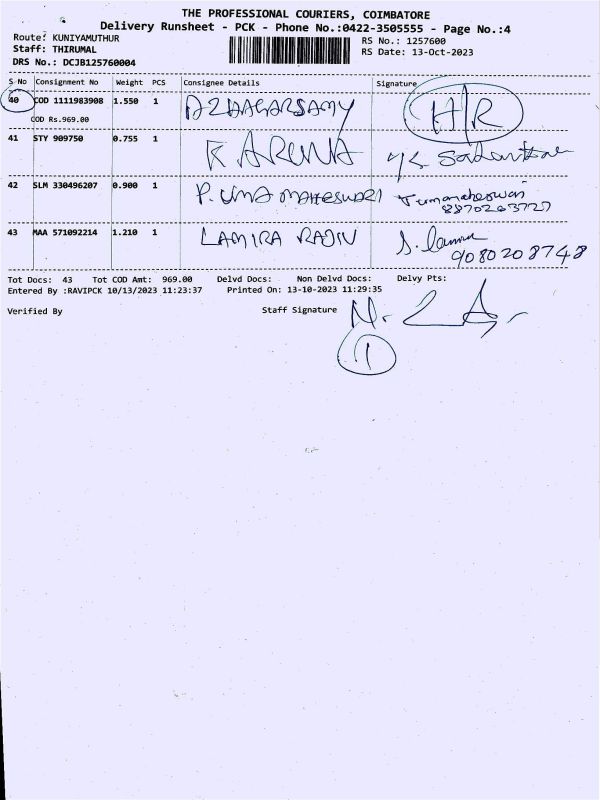 THE PROFESSIONAL COURIERS, COIMBATORE
Delivery Runsheet - PCK - Phone No.:0422-3505555 - Page No.:4
Route: KUNIYAMUTHUR
RS No.: 1257600
Staff: THIRUMAL
RS Date: 13-Oct-2023
DRS No.: DCJB125760004
S No Consignment No Weight PCS Consignee Details Signature
40 COD 1111983908 1.550 1 AZHAGARSAMY H/R
COD Rs.969.00
41 STY 909750 0.755 1 K ARUNA
42 SLM 330496207 0.900 1 P. UMA MAHESWARI
8870263727
43 MAA 571092214 1.210 1 LAMIRA RAJIV
9080208748
Tot Docs: 43 Tot COD Amt: 969.00 Delvd Docs: Non Delvd Docs: Delvy Pts:
Entered By :RAVIPCK 10/13/2023 11:23:37 Printed On: 13-10-2023 11:29:35
Verified By Staff Signature
1